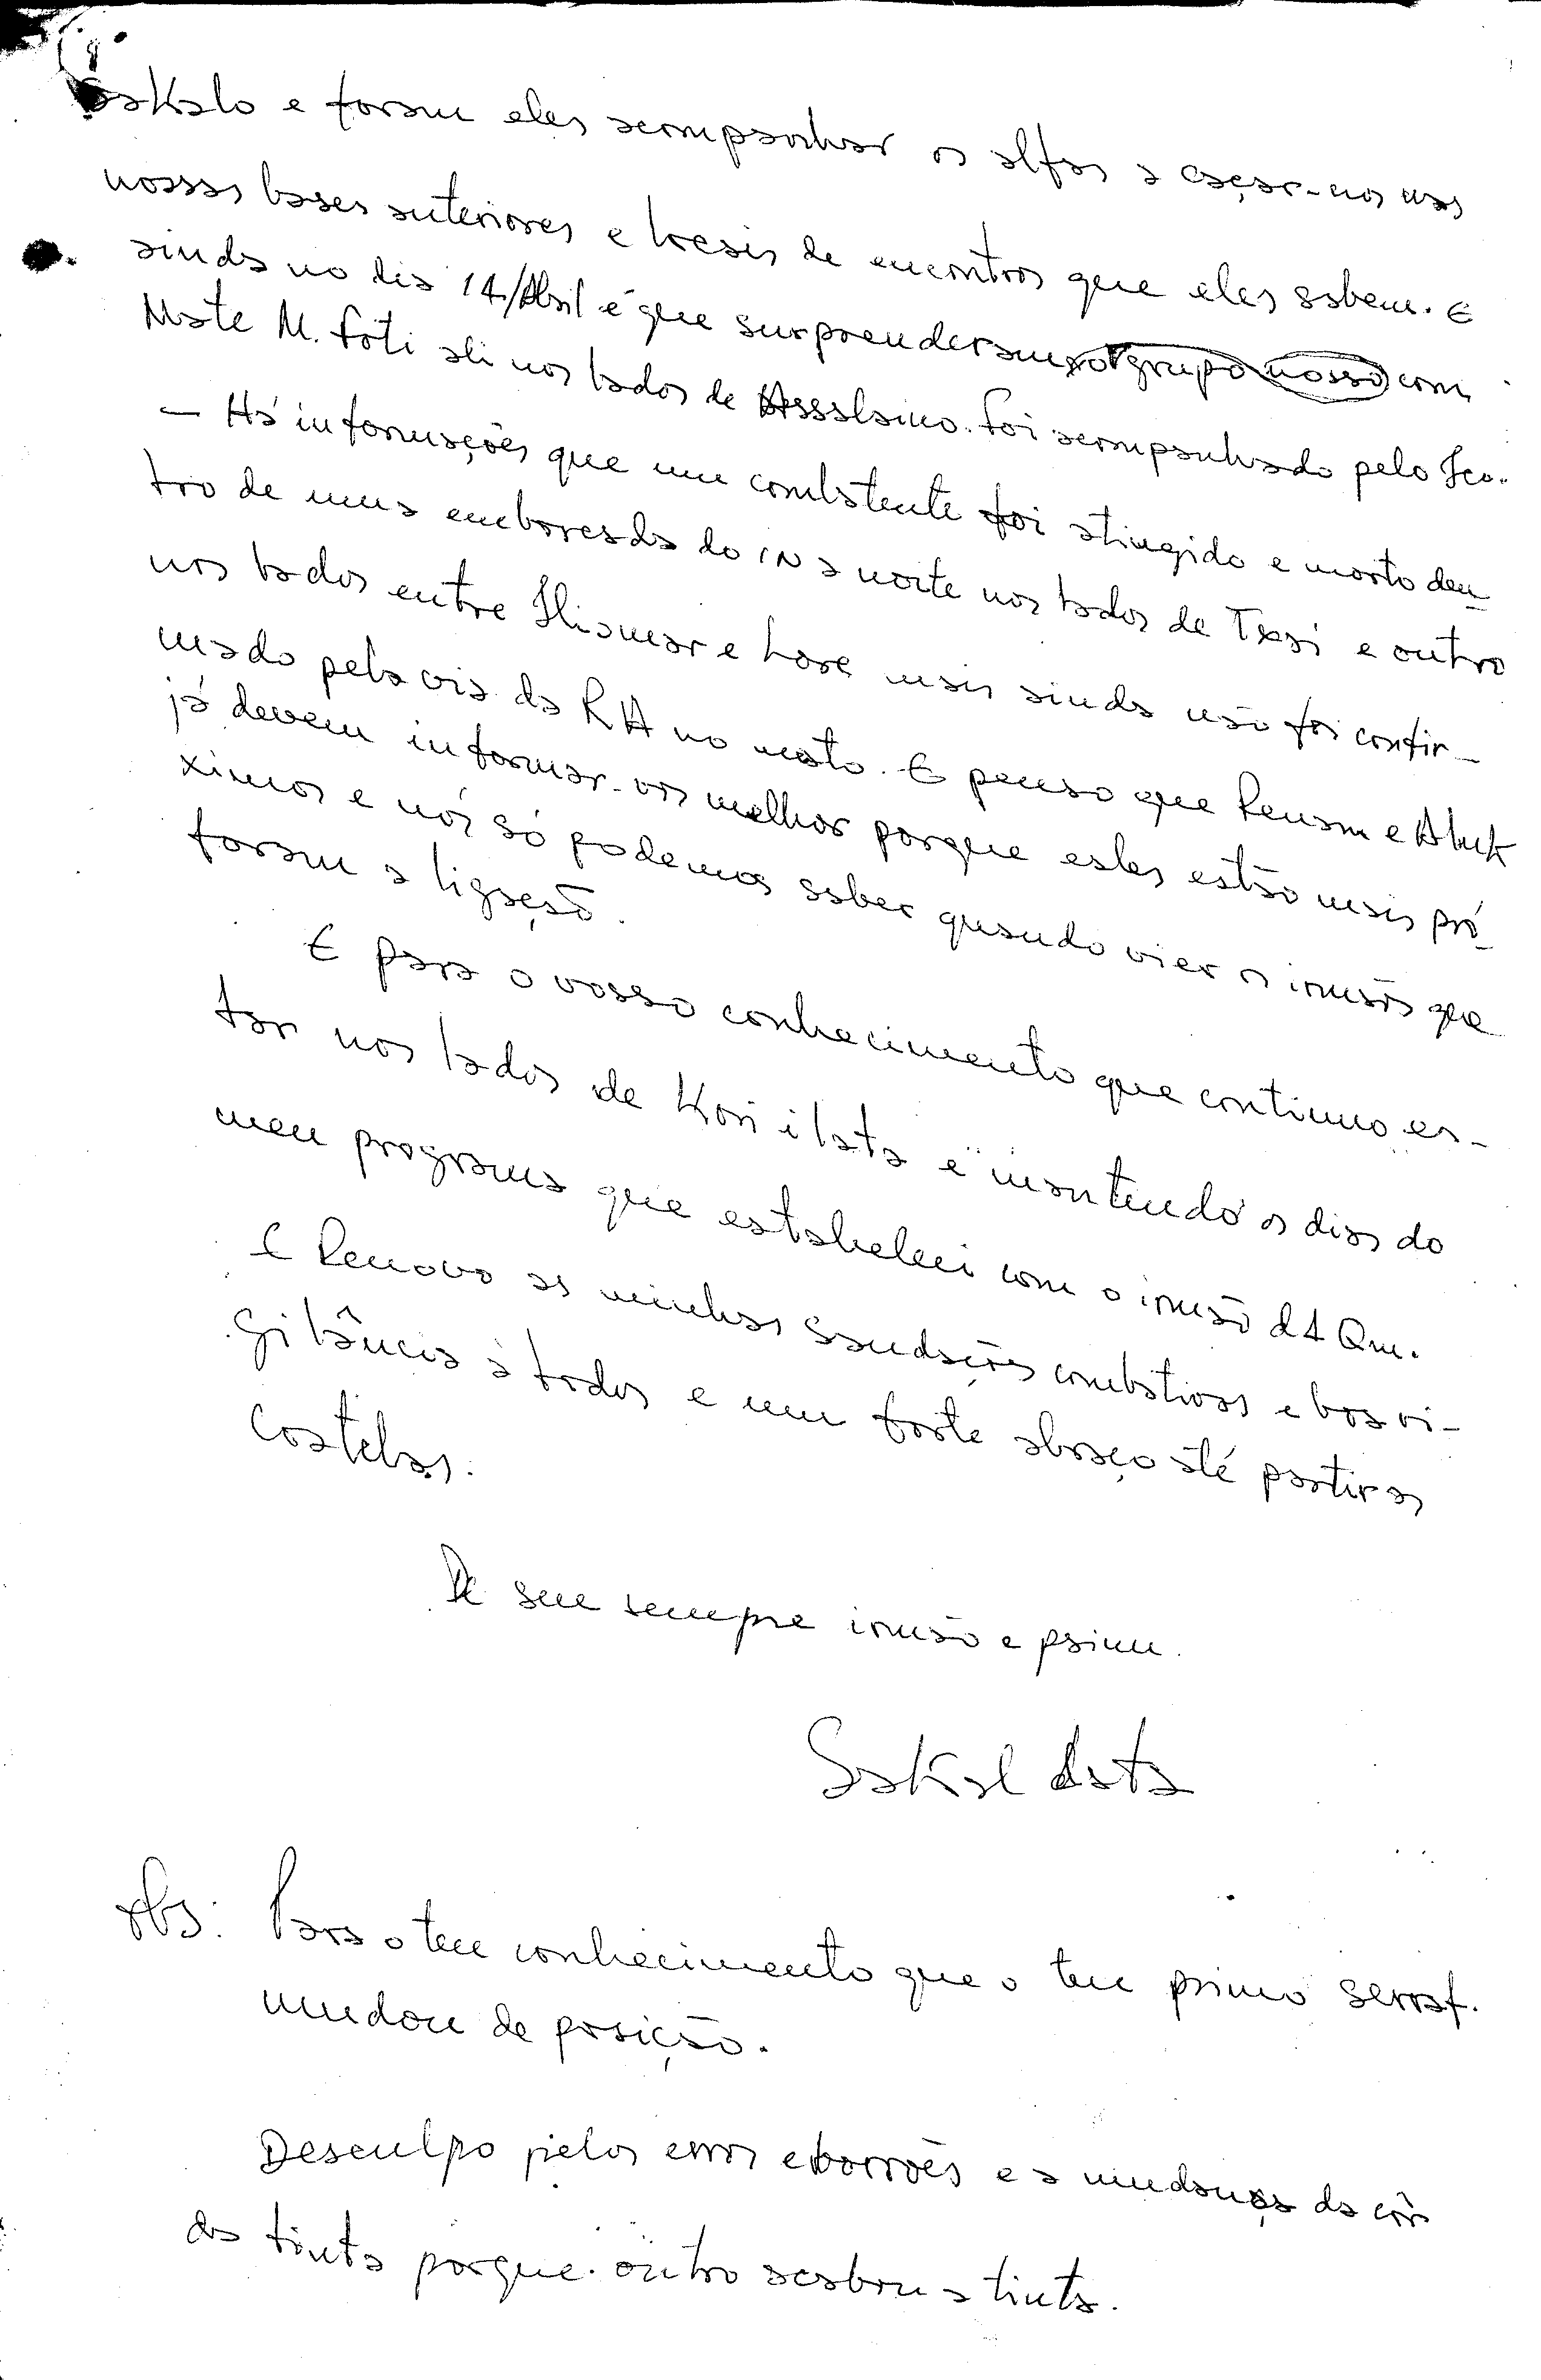 Sakalo e foram eles acompanhar os alfas a caçar-nos nas
nossas bases anteriores e locais de encontros que eles sabem. E
ainda no dia 14/Abril é que surpreenderam o grupo nosso com
Mate M. Foti ali nos lados de Assalaino. Foi acompanhado pelo
— Há informações que um combatente foi atingido e morto den-
tro de uma emboscada do IN a noite nos lados de e outro
nos lados entre Iliamar e Lore mais ainda não foi confir-
mado pela via da RA no mato. E penso que Renam e Aluk
já devem informar-vos melhor porque estes estão mais pró-
ximos e nós só podemos saber quando vier os irmãos que
foram a ligação.
E para o vosso conhecimento que continuo es-
tar nos lados de Kori ilata e mantendo os dias do
meu programa que estabeleci com o irmão d4 Qm.
E Renovo as minhas saudações combativas e boa vi-
gilância à todos e um forte abraço até partir as
costelas.
De seu sempre irmão e primo.
Sakal Lata
Obs: Para o teu conhecimento que o teu primo serraf.
mudou de posição.
Desculpo pelos erros e borrões e a mudança da côr
da tinta porque outro acabou a tinta.